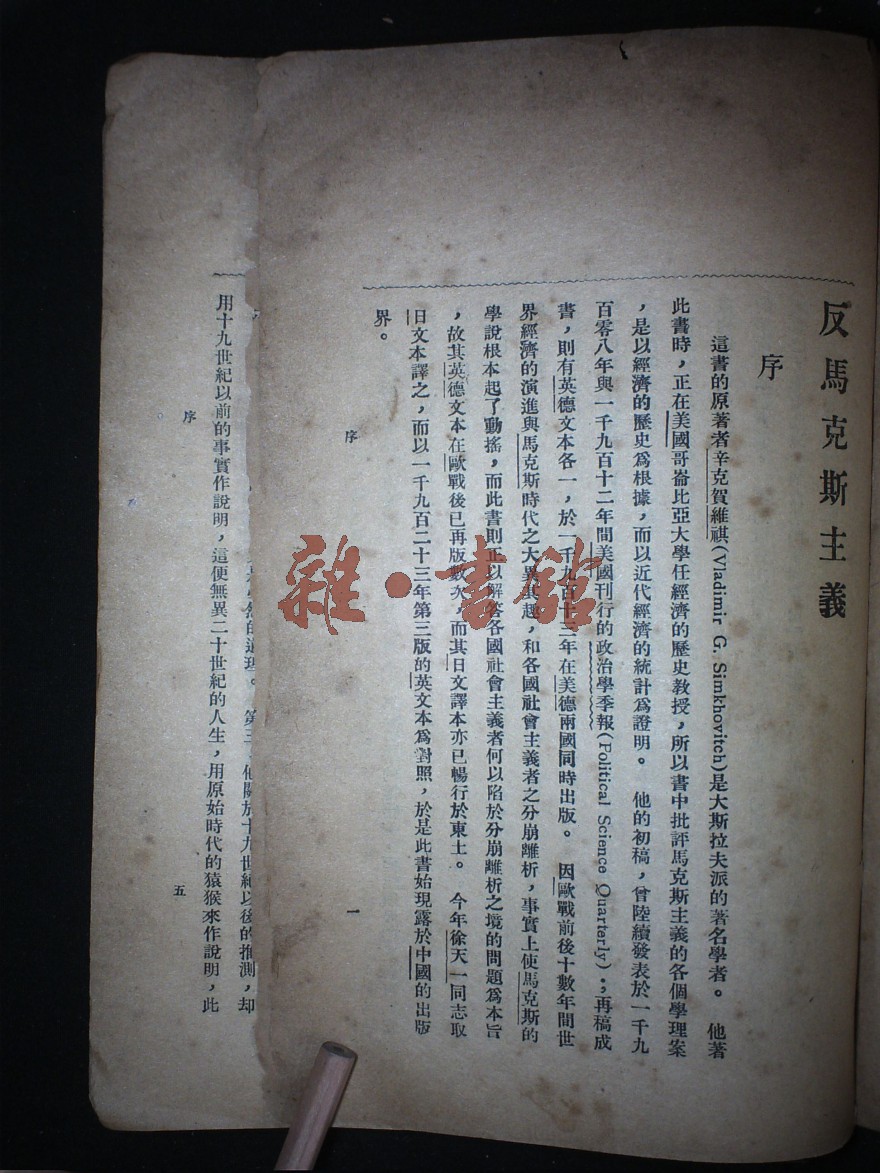 反馬克斯主義
序
這書的原著者辛克賀維祺(Vladimir G. Simkhovitch)是大斯拉夫派的著名學者。他著
此書時，正在美國哥崙比亞大學任經濟的歷史教授，所以書中批評馬克斯主義的各個學理案
，是以經濟的歷史爲根據，而以近代經濟的統計爲證明。他的初稿，曾陸續發表於一千九
百零八年與一千九百十二年間美國刊行的政治學季報(Political Science Quarterly)，再稿成
書，則有英德文本各一，於一千九百十三年在美德兩國同時出版。因歐戰前後十數年間世
界經濟的演進與馬克斯時代之大異其趣，和各國社會主義者之分崩離析，事實上使馬克斯的
學說根本起了動搖，而此書則正以解答各國社會主義者何以陷於分崩離析之境的問題爲本旨
，故其英德文本在歐戰後已再版數次，而其日文譯本亦已暢行於東土。今年徐天一同志取
日文本譯之，而以一千九百二十三年第三版的英文本爲對照，於是此書始現露於中國的出版
界。
序
一
然的道理。第三，他關於十九世紀以後的推測，却
用十九世紀以前的事實作說明，這便無異二十世紀的人生，用原始時代的猿猴來作說明，此
序
五
雜·書館